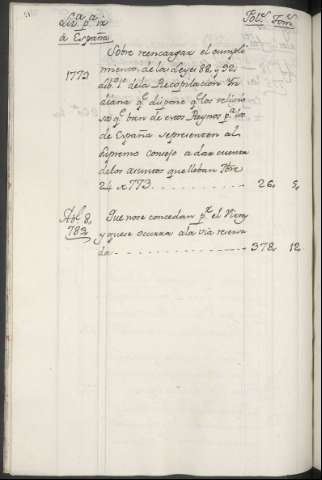 Liz.a p.a ir Fol.s Tom.s
á España
Sobre reencargar el cumpli-
1773 miento de las Leyes 88, y 92.
lib.º 1º dela Recopilacion Yn
diana q.e dispone q.e los religio
sos q.e bien de estos Reynos p.a los
de España representen al
Supremo consejo a dar cuenta
delos asuntos que lleban 7bre
24 1773. 26, 5,
Abl 8, Que nose concedan p.r el Virrey
783, y quese ocurra ala via reserva
da 378, 12